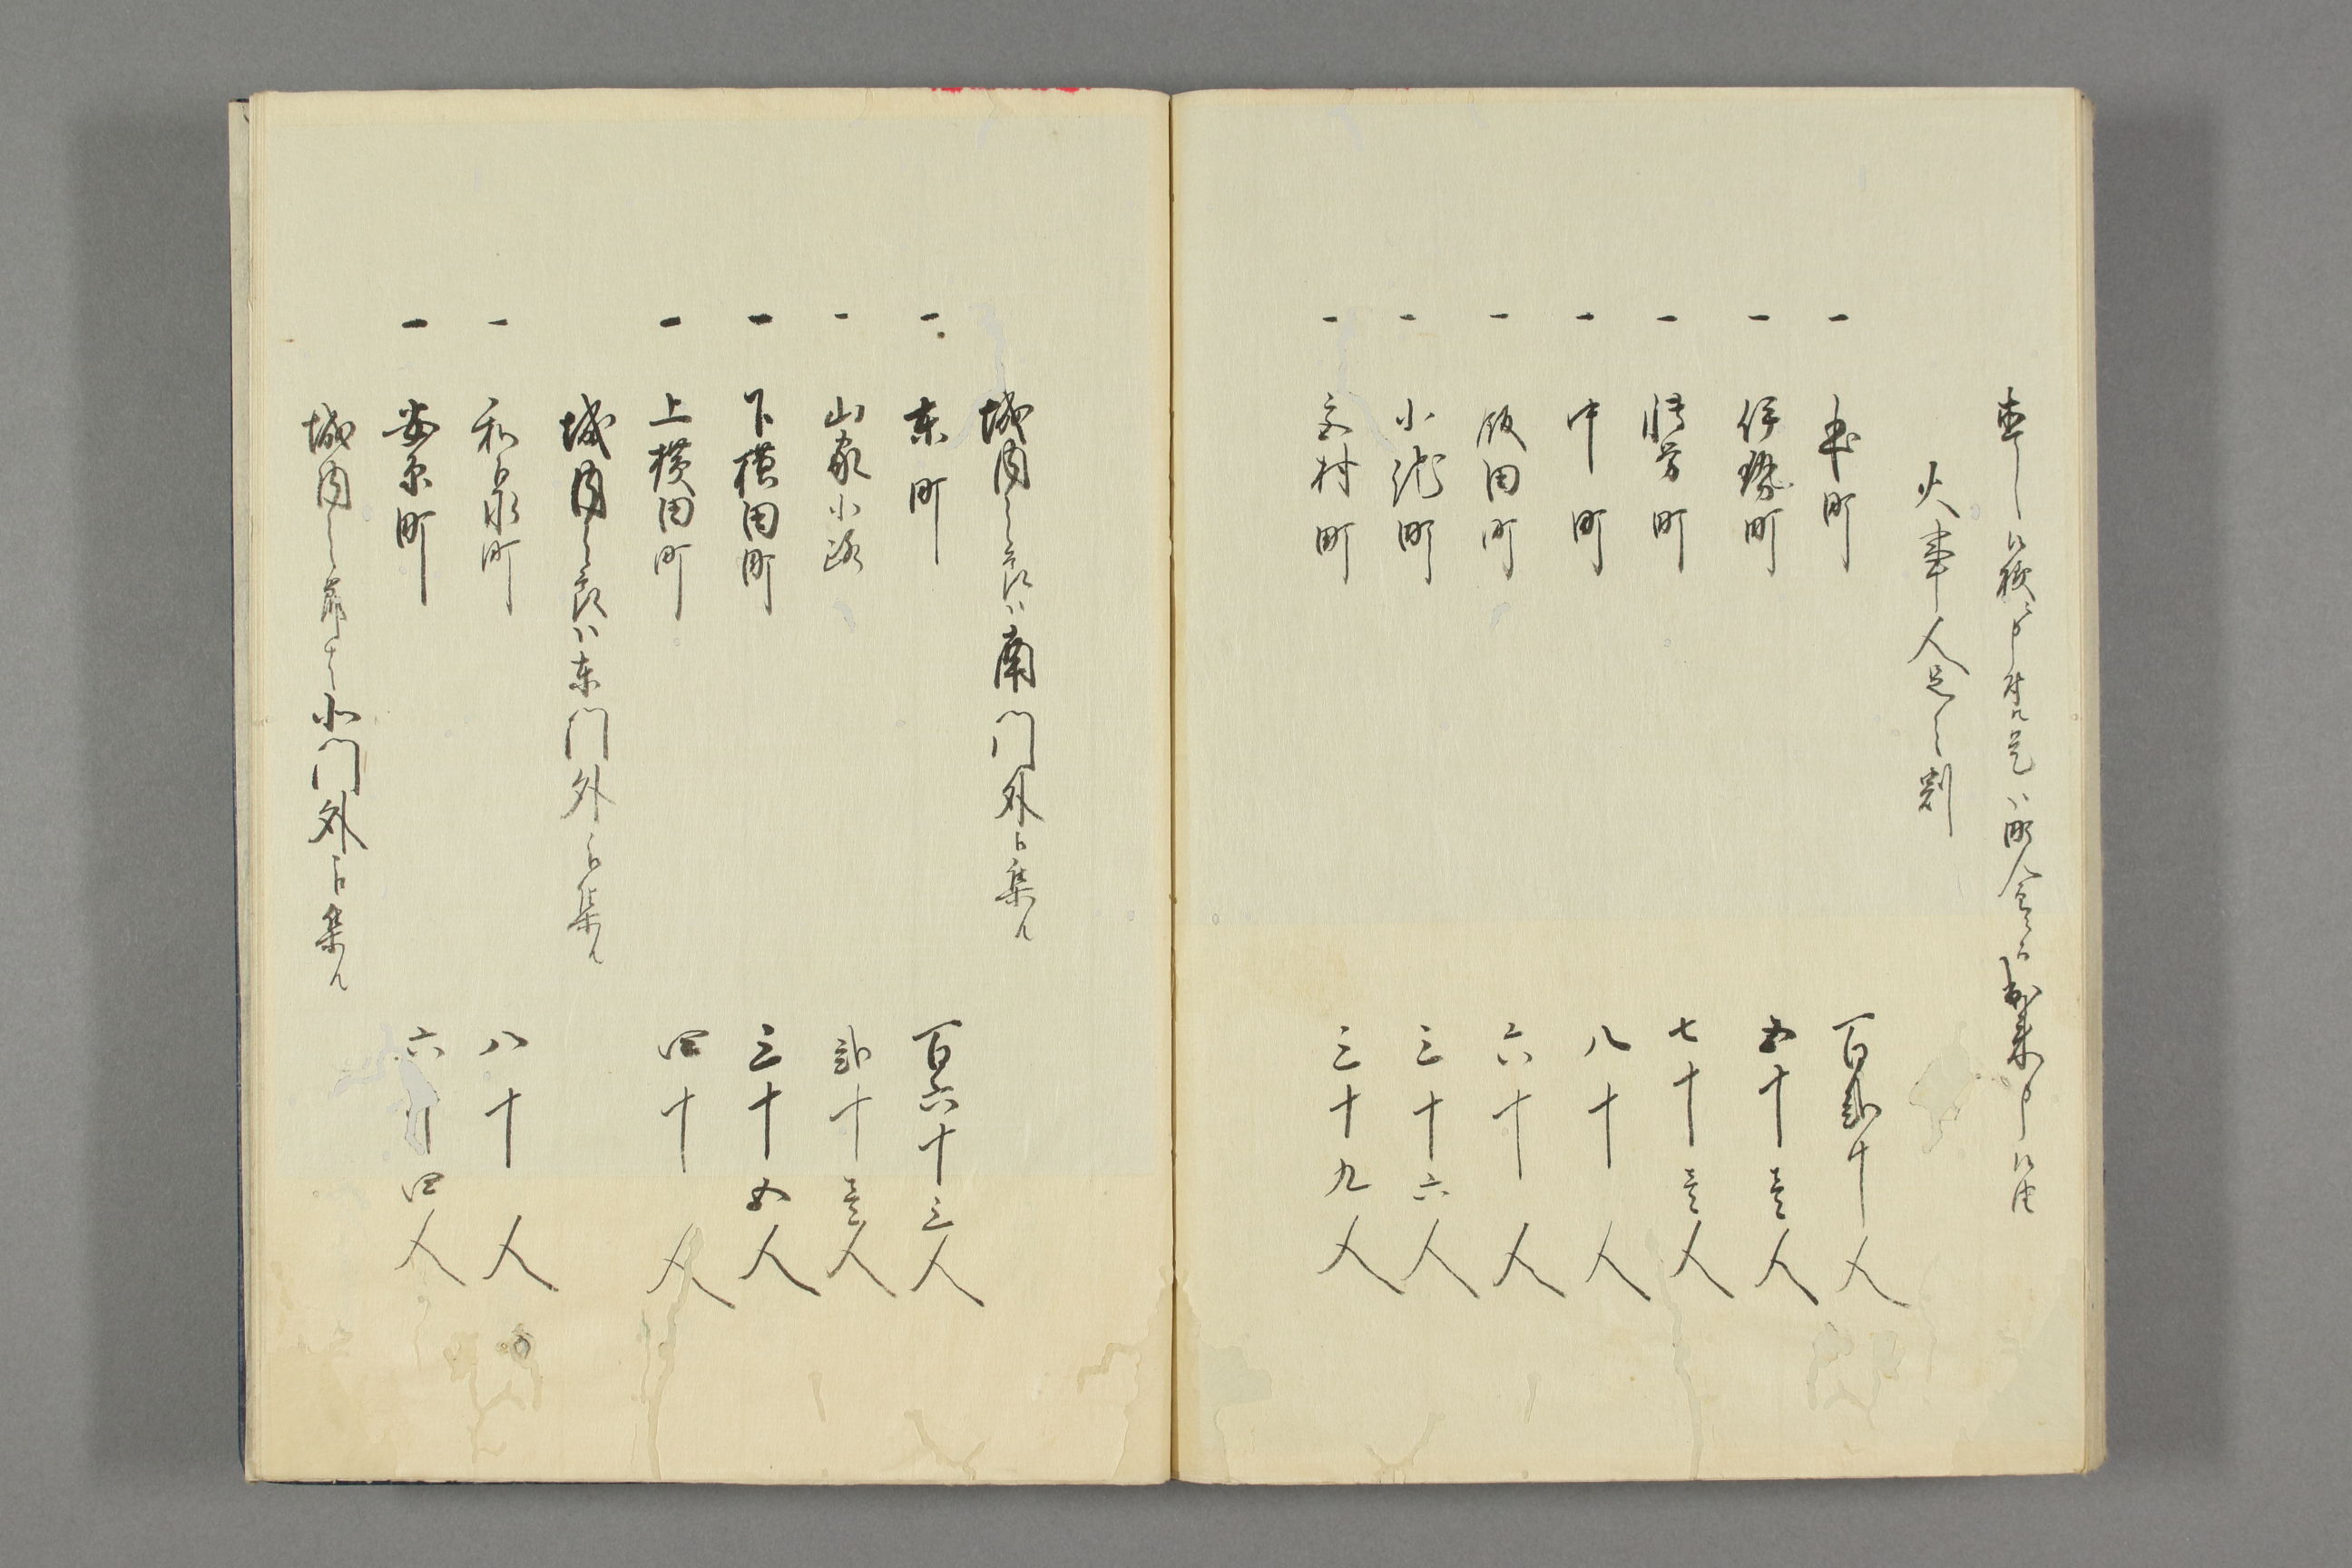 火事人足之割
一 本町 百弐十人
一 伊勢町 五十壱人
一 博労町 七十壱人
一 中町 八十人
一 飯田町 六十人
一 小池町 三十六人
一 宮村町 三十九人
城内之節ハ南門外ニ集ル
一 東町 百六十三人
一 山家小路 弐十壱人
一 下横田町 三十五人
一 上横田町 四十人
城内之節ハ東門外ニ集ル
一 和泉町 八十人
一 安原町 六十四人
城内之節ハ北門外ニ集ル